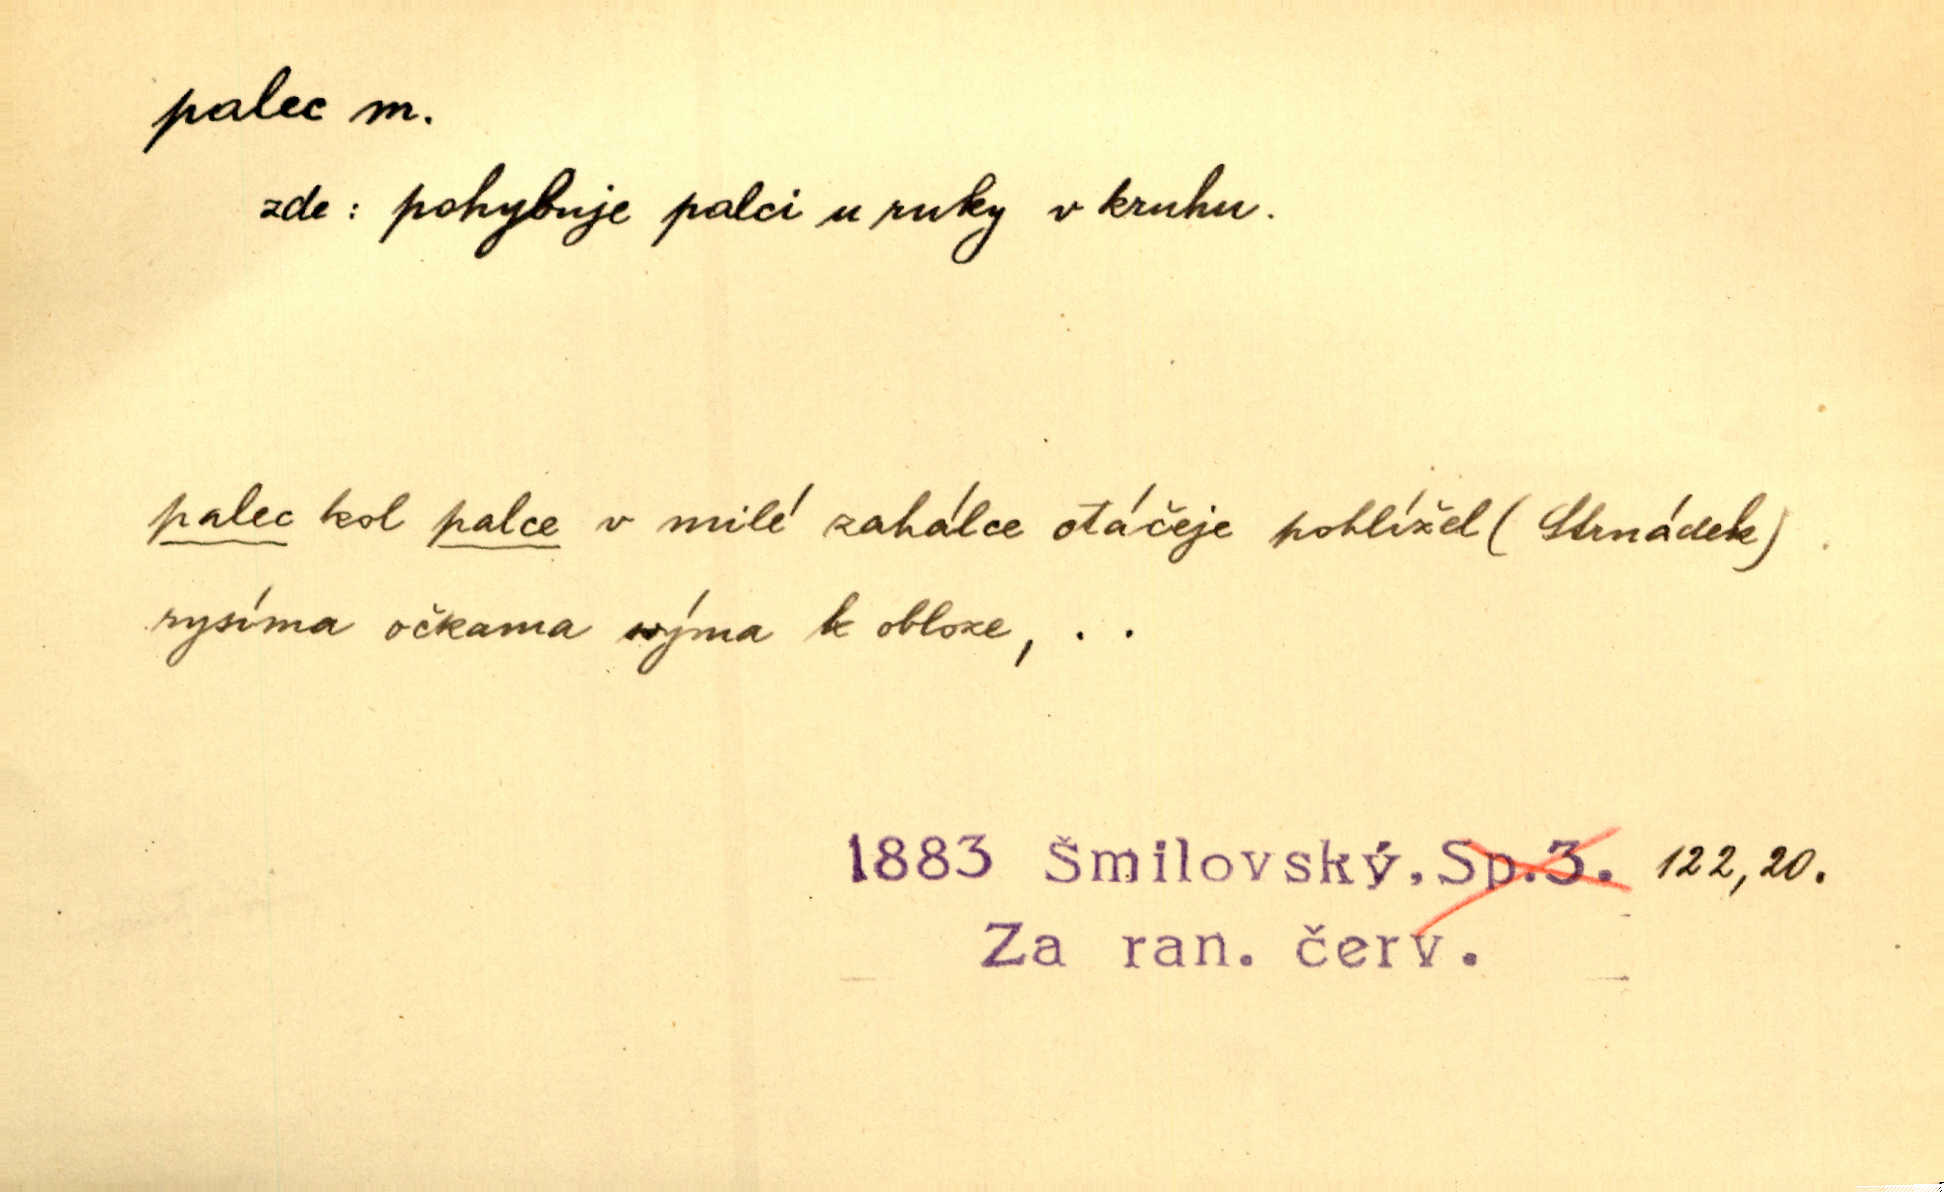 palec m.
zde: pohybuje palci u ruky v kruhu.
palec kol palce v milé zahálce otáčeje pohlížel (Strnádek)
rysíma očkama svýma k obloze, . .
1883 Šmilovský, Sp.3. 122,20.
Za ran. červ.